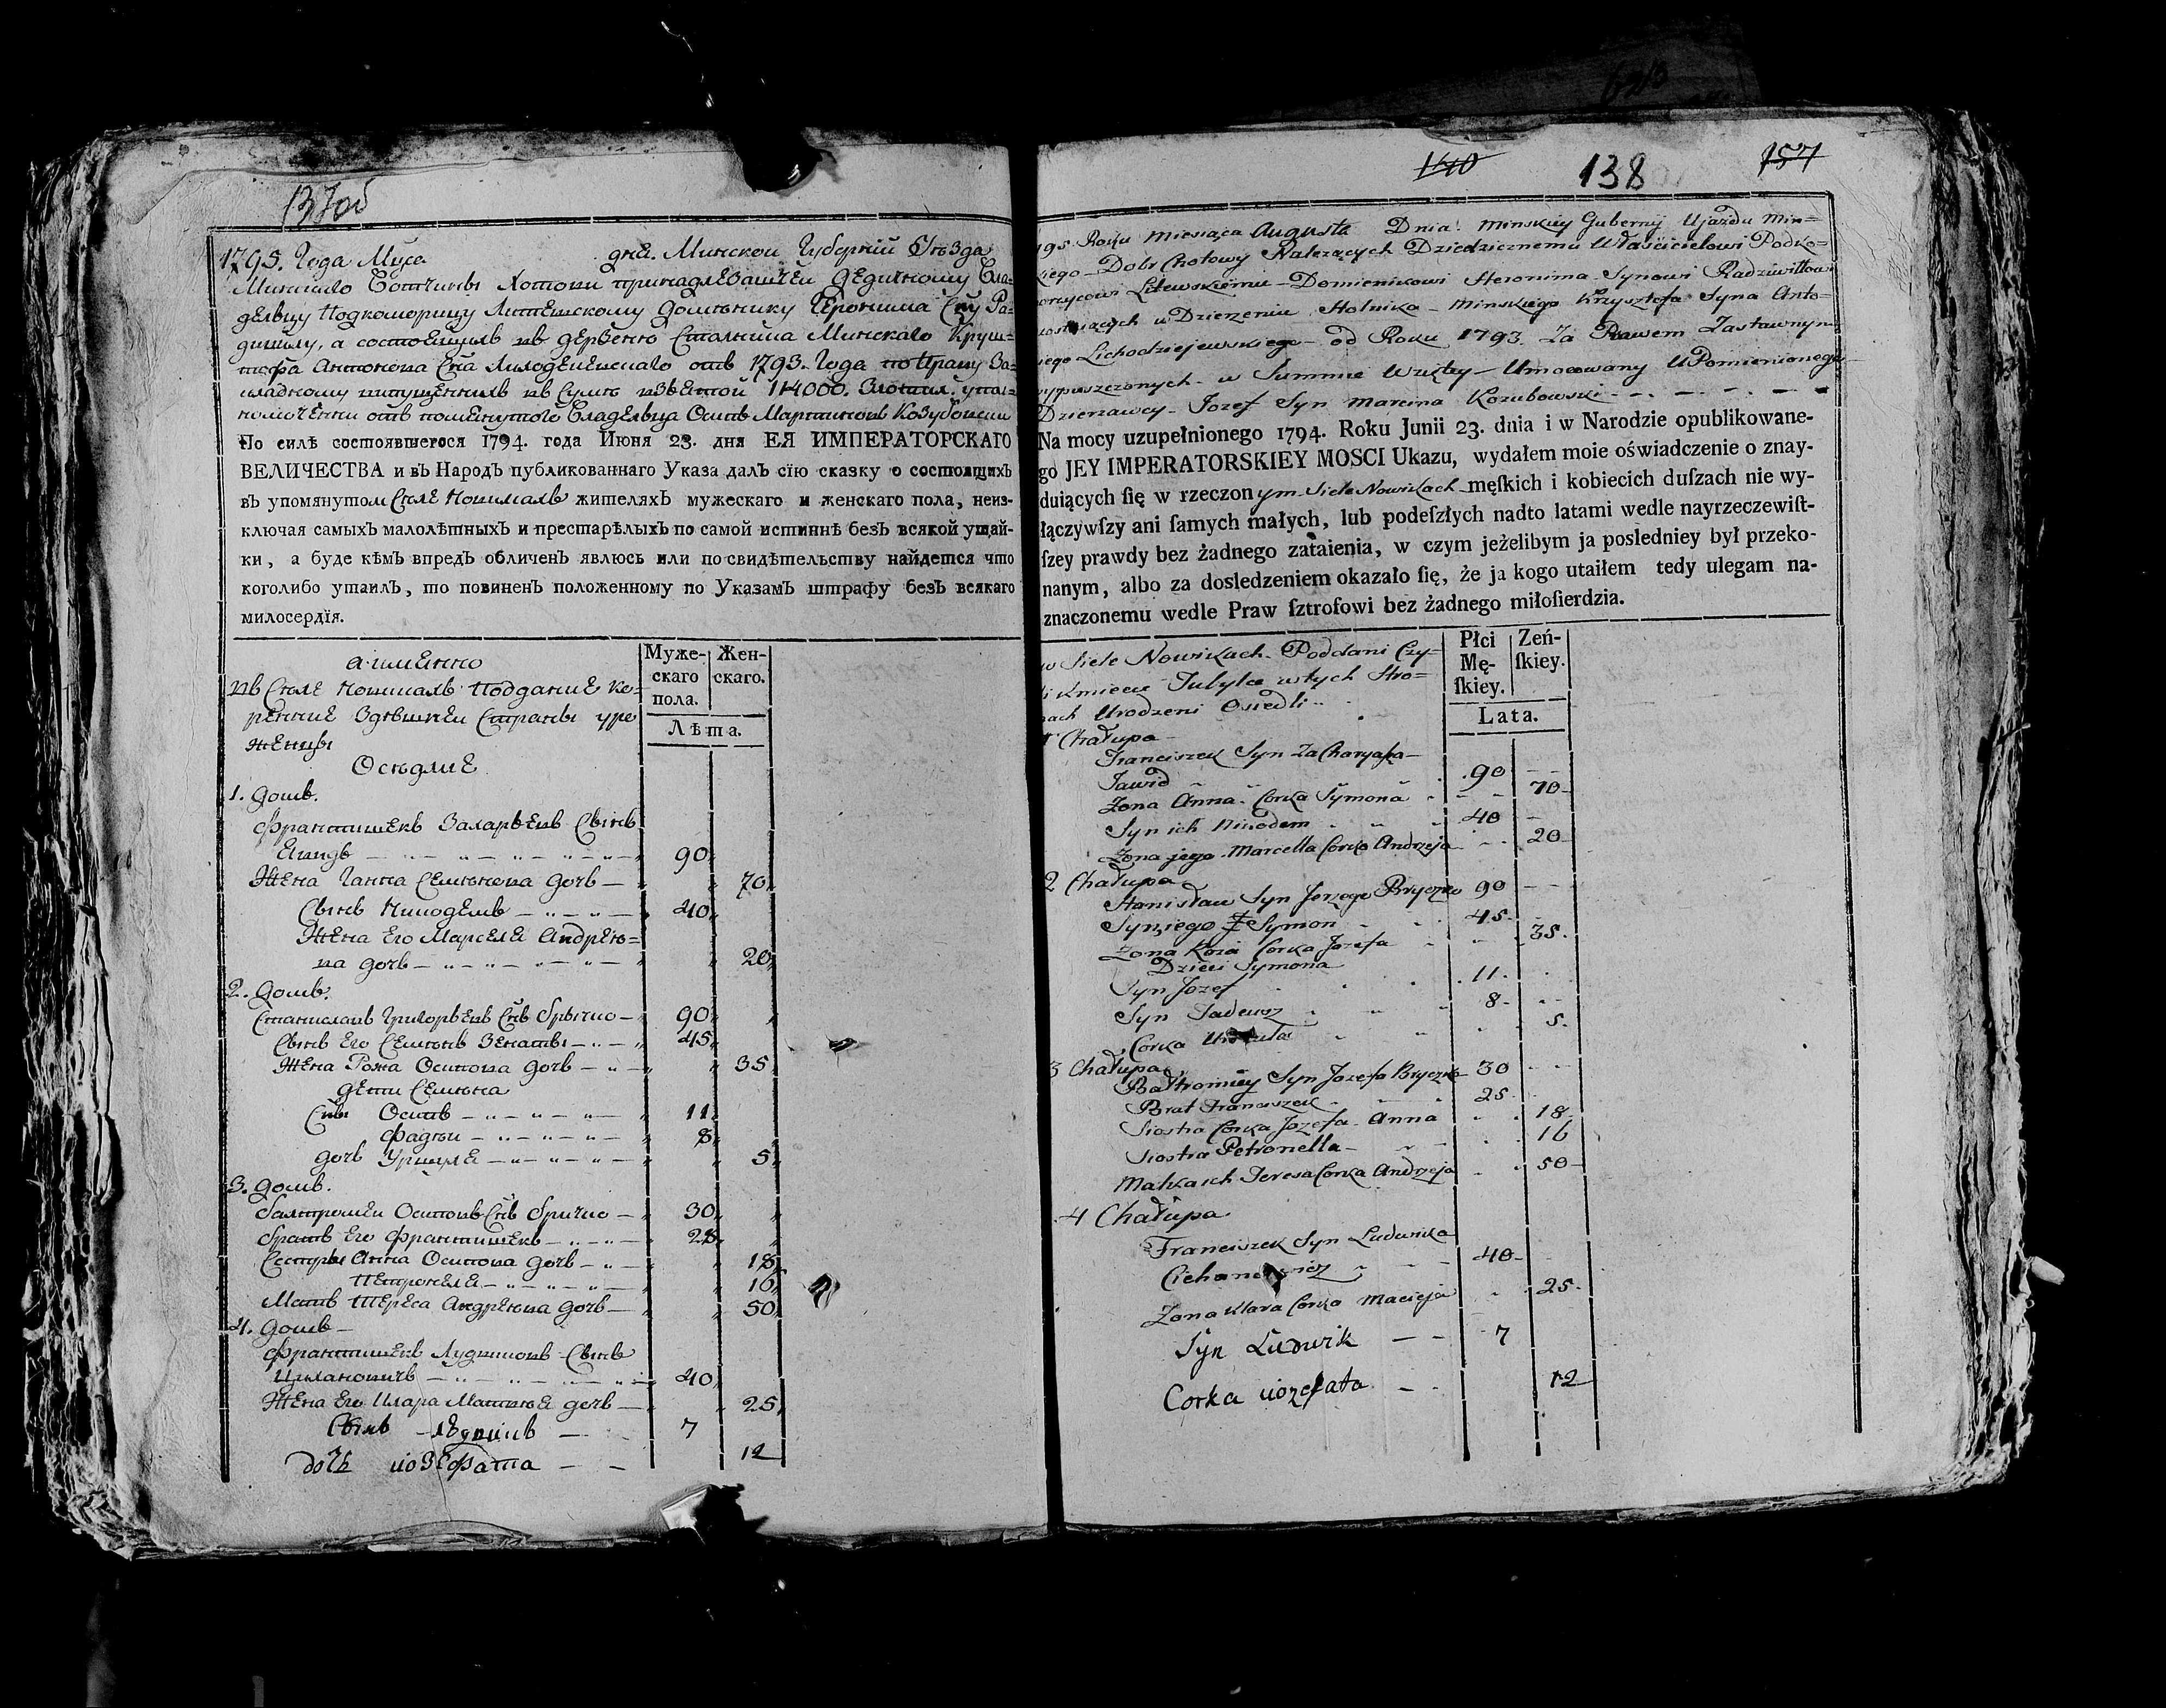 137об
1795. Года Мца дня. Минской Губернїи Уѣзда
Минскаго Вотчины Хотовы принадлежащей дедичному Вла=
дельцу Подкоморицу Литевскому Доминику Геронима Сну Ра=
дивилу, а состоящимъ въ державе Стольника Минскаго Круш=
тофа Антонова Сна отъ 1793. Года по Праву За=
кладному въ Сумѣ взятой 114000. упал=
номоченни отъ помянутого Владельца Осипъ Мартиновъ Козубовски
По силѣ состоявшегося 1794. года Июня 23. дня ЕЯ ИМПЕРАТОРСКАГО
ВЕЛИЧЕСТВА и въ Народъ публикованнаго Указа далъ сїю сказку о состоящихъ
въ упомянутом Селе Новикахъ жителяхъ мужескаго и женскаго пола, неиз-
ключая самыхъ малолѣтныхъ и престарѣлыхъ по самой истиннѣ безъ всякой утай-
ки, а буде кѣмъ впредъ обличенъ явлюсь или по свидѣтельству найдется что
коголибо утаилъ, то повиненъ положенному по Указамъ штрафу безъ всякаго
милосердїя.
а имянно
Муже-
скаго
пола.
Жен-
скаго.
Лѣта.
въ Селе Новикахъ Поддание Ко=
ренние Здѣшнеи Страны уро
женцы
Оседлие
1. домъ.
Франтишекъ Захарьевъ Сынъ
Явидъ 90
Жена Ганна Семионова дочь 70
Сынъ Никодемъ 40
Жена Его Марселя Андрею=
ва дочь 20
2. домъ.
Станиславъ Григорьевъ Снъ Брычко 90
Сынъ Его Семионъ Женаты 45
Жена Рожа Осипова дочь 35
дети Семиона
Сны Осипъ 11
Фадѣи 8
дочь Уршуля 5
3. домъ.
Балтромеи Осиповъ Снъ Бричко 30
братъ Его Франтишекъ 25
Сестры Анна Осипова дочь 18
Петронеля 16
Мать Тереса Андреюва дочь 50
4. домъ
Франтишекъ Лудвиковъ Сынъ
Цихановичъ 40
Жена Его Клара Матвея дочь 25
Сынъ Лудвикъ 7
дочь иозефата 12
140 138 157
195. Roku Miesiąca Augusta Dnia Minskiey Gubernij Ujazdu Min=
kiego Dobr Chotowy Nalezących Dziedzicznemu Właścicielowi Podko=
orzycowi Litewskiemu Domienikowi Heronima Synowi Radziwiłłow
ostaiących w Dzierzeniu Stolnika Minskiego Krzysztofa Syna Anto=
iego Lichodziejewskiego od Roku 1793. Za Prawem Zastawnym
ypuszczonych w Summie Wziętey Umocowany UPomienionego
Dzierzawcy Jozef Syn Marcina Kozubowski
Na mocy uzupełnionego 1794. Roku Junii 23. dnia i w Narodzie opublikowane-
go JEY IMPERATORSKIEY MOSCI Ukazu, wydałem moie oświadczenie o znay-
duiących ſię w rzeczonym Siele Nowikach męſkich i kobiecich duſzach nie wy-
łączywſzy ani ſamych małych, lub podeſzłych nadto latami wedle nayrzeczewiſt-
ſzey prawdy bez żadnego zataienia, w czym jeżelibym ja posledniey był przeko-
nanym, albo za dosledzeniem okazało ſię, że ja kogo utaiłem tedy ulegam na-
znaczonemu wedle Praw ſztrofowi bez żadnego miłoſierdzia.
w Siele Nowikach Poddani Czy=
li Kmiecie Tutylce w tych Stro=
nach Urodzeni Osiedli
Płci
Mę-
ſkiey.
Zeń-
ſkiey.
Lata.
1 Chałupa
Franciszek Syn Zacharyasza
Jawid 90
Zona Anna Corka Symona 70
Syn ich Nikodem 40
Zona jego Marcella Corka Andrzeja 20
2 Chałupa
Stanisław Syn Jerzego Bryczko 90
Syn jego Symon 45
Zona Roza Corka Jozefa 35
Dzieci Symona
Syn Jozef 11
Syn Tadeusz 8
Corka Urszula 5
3 Chałupa
Bałtromiey Syn Jozefa Bryczko 30
Brat Franciszek 25
Siostra Corka Jozefa Anna 18
Siostra Petronella 16
Matka ich Teresa Corka Andrzeja 50
4 Chałupa
Franciszek Syn Ludwika
Cichanowicz 40
Zona Klara Corka Macieja 25
Syn Ludwik 7
Corka iozefata 12